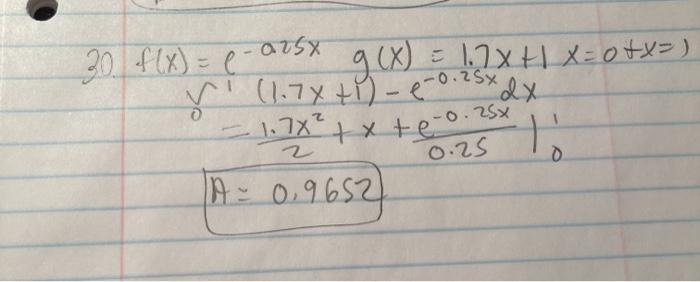 30. f(x) = e^-0.25x g(x) = 1.7x+1 x=0+x=1
∫₀¹ (1.7x+1) - e^-0.25x dx
= 1.7x²/2 + x + e^-0.25x/0.25 |₀¹
A = 0.9652